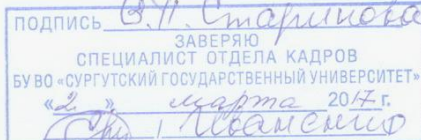 ПОДПИСЬ В.П. Старикова
ЗАВЕРЯЮ
СПЕЦИАЛИСТ ОТДЕЛА КАДРОВ
БУ ВО «СУРГУТСКИЙ ГОСУДАРСТВЕННЫЙ УНИВЕРСИТЕТ»
«2» марта 2017 г.
Иваненко